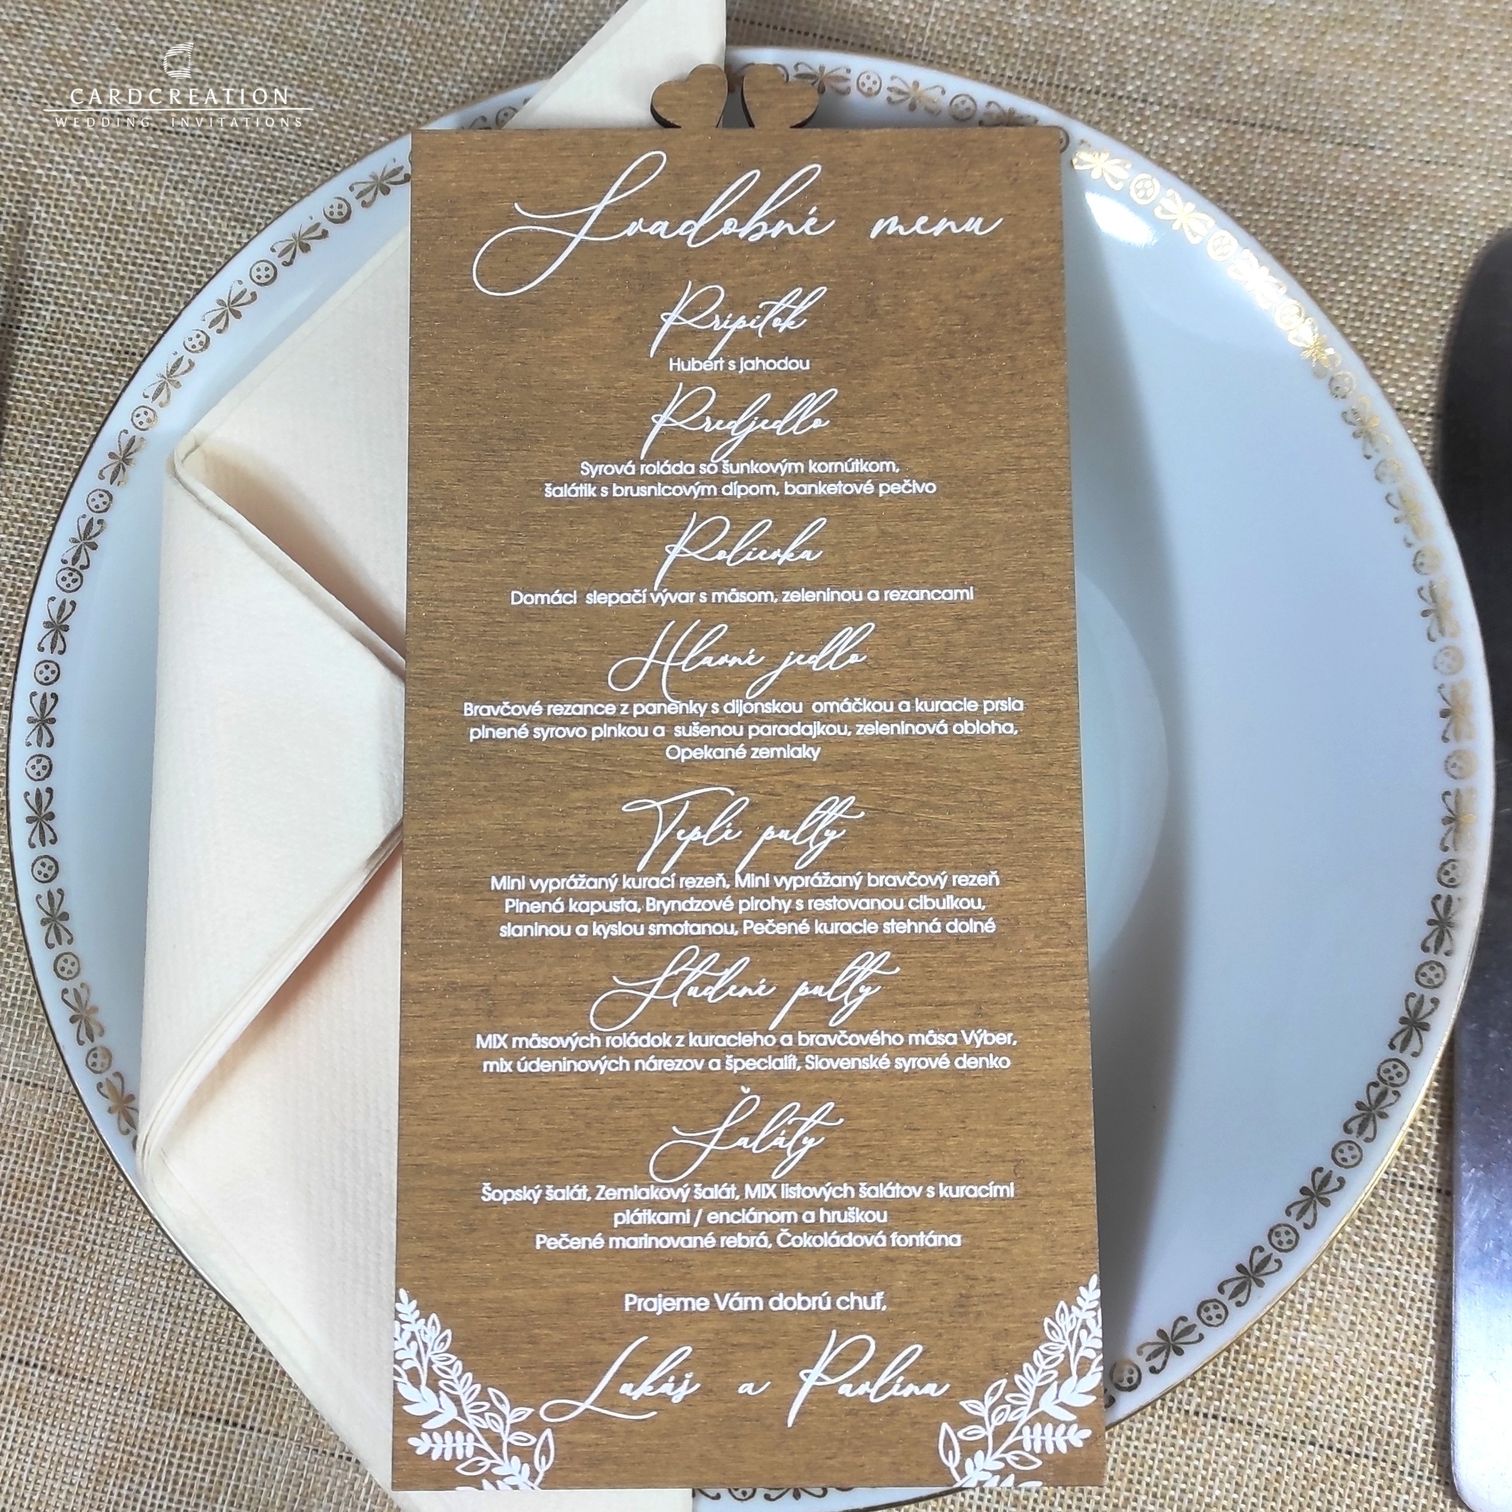 CARDCREATION
WEDDING INVITATIONS
Svadobné menu
Prípitok
Hubert s jahodou
Predjedlo
Syrová roláda so šunkovým kornútkom,
šalátik s brusnicovým dipom, banketové pečivo
Polievka
Domáci slepačí vývar s mäsom, zeleninou a rezancami
Hlavné jedlo
Bravčové rezance z panenky s dijonskou omáčkou a kuracie prsia
plnené syrovo plnkou a sušenou paradajkou, zeleninová obloha,
Opekané zemiaky
Teplé pulty
Mini vyprážaný kurací rezeň, Mini vyprážaný bravčový rezeň
Plnená kapusta, Bryndzové pirohy s restovanou cibuľkou,
slaninou a kyslou smotanou, Pečené kuracie stehná dolné
Studené pulty
MIX mäsových roládok z kuracieho a bravčového mäsa Výber,
mix údeninových nárezov a špecialít, Slovenské syrové denko
Šaláty
Šopský šalát, Zemiakový šalát, MIX listových šalátov s kuracími
plátkami / enciánom a hruškou
Pečené marinované rebrá, Čokoládová fontána
Prajeme Vám dobrú chuť,
Lukáš a Pavlína